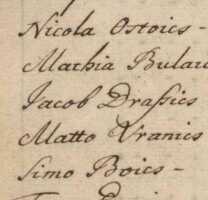 Nicola Ostoics -
Mathia Bulau
Jacob Drassics
Matto Vranics
Simo Boics -